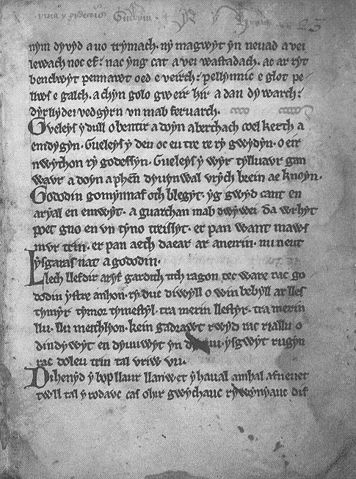 nym dyvyd a uo trymach. ny magwyt yn neuad a vei
lewach noc ef. nac yng cat a vei wastadach. ac ar ryt
benclwyt pennawt oed e veirch. pellynnic e glot pe
llws e galch. a chyn golo gweir hir a dan dywarch.
dyrllydei vedgyrn vn mab feruarch.
Gueleys y dull o bentir a doyn aberthach coel kerth a
emdygyn. Gueleys y deu oc eu tre re ry gwydyn. o eir
nwython ry godessyn. Gueleys y wyr tylluavr gan
wavr a doyn a phen dyuynwal vrych brein ae knoyn.
Gododin gomynnaf oth blegyt. yg gwyd cant en
aryal en emwyt. a guarchan mab dwywei da wrhyt
poet gno en vn tyno treissyt. er pan want maws
mvr trin. er pan aeth daear ar aneirin. mi neut
ysgaras nat a gododin.
Llech llefdir aryf gardith tith ragon tec ware rac go
dodin ystre anhon. ry duc diwyll o win bebyll ar lles
tymyr. tymor tymestyl. tra merin llestyr. tra merin
llu. llu meithlyon. kein gadrawt rwyd rac riallu o
dindywyt en dyuuwyt yn ysgwyt rugyn
rac doleu trin tal vriw vu.
Dihenyd y bop llaur llanwet y haual amhal afneuet
twll tal y rodavc cas ohir gwychauc rywynyauc dif